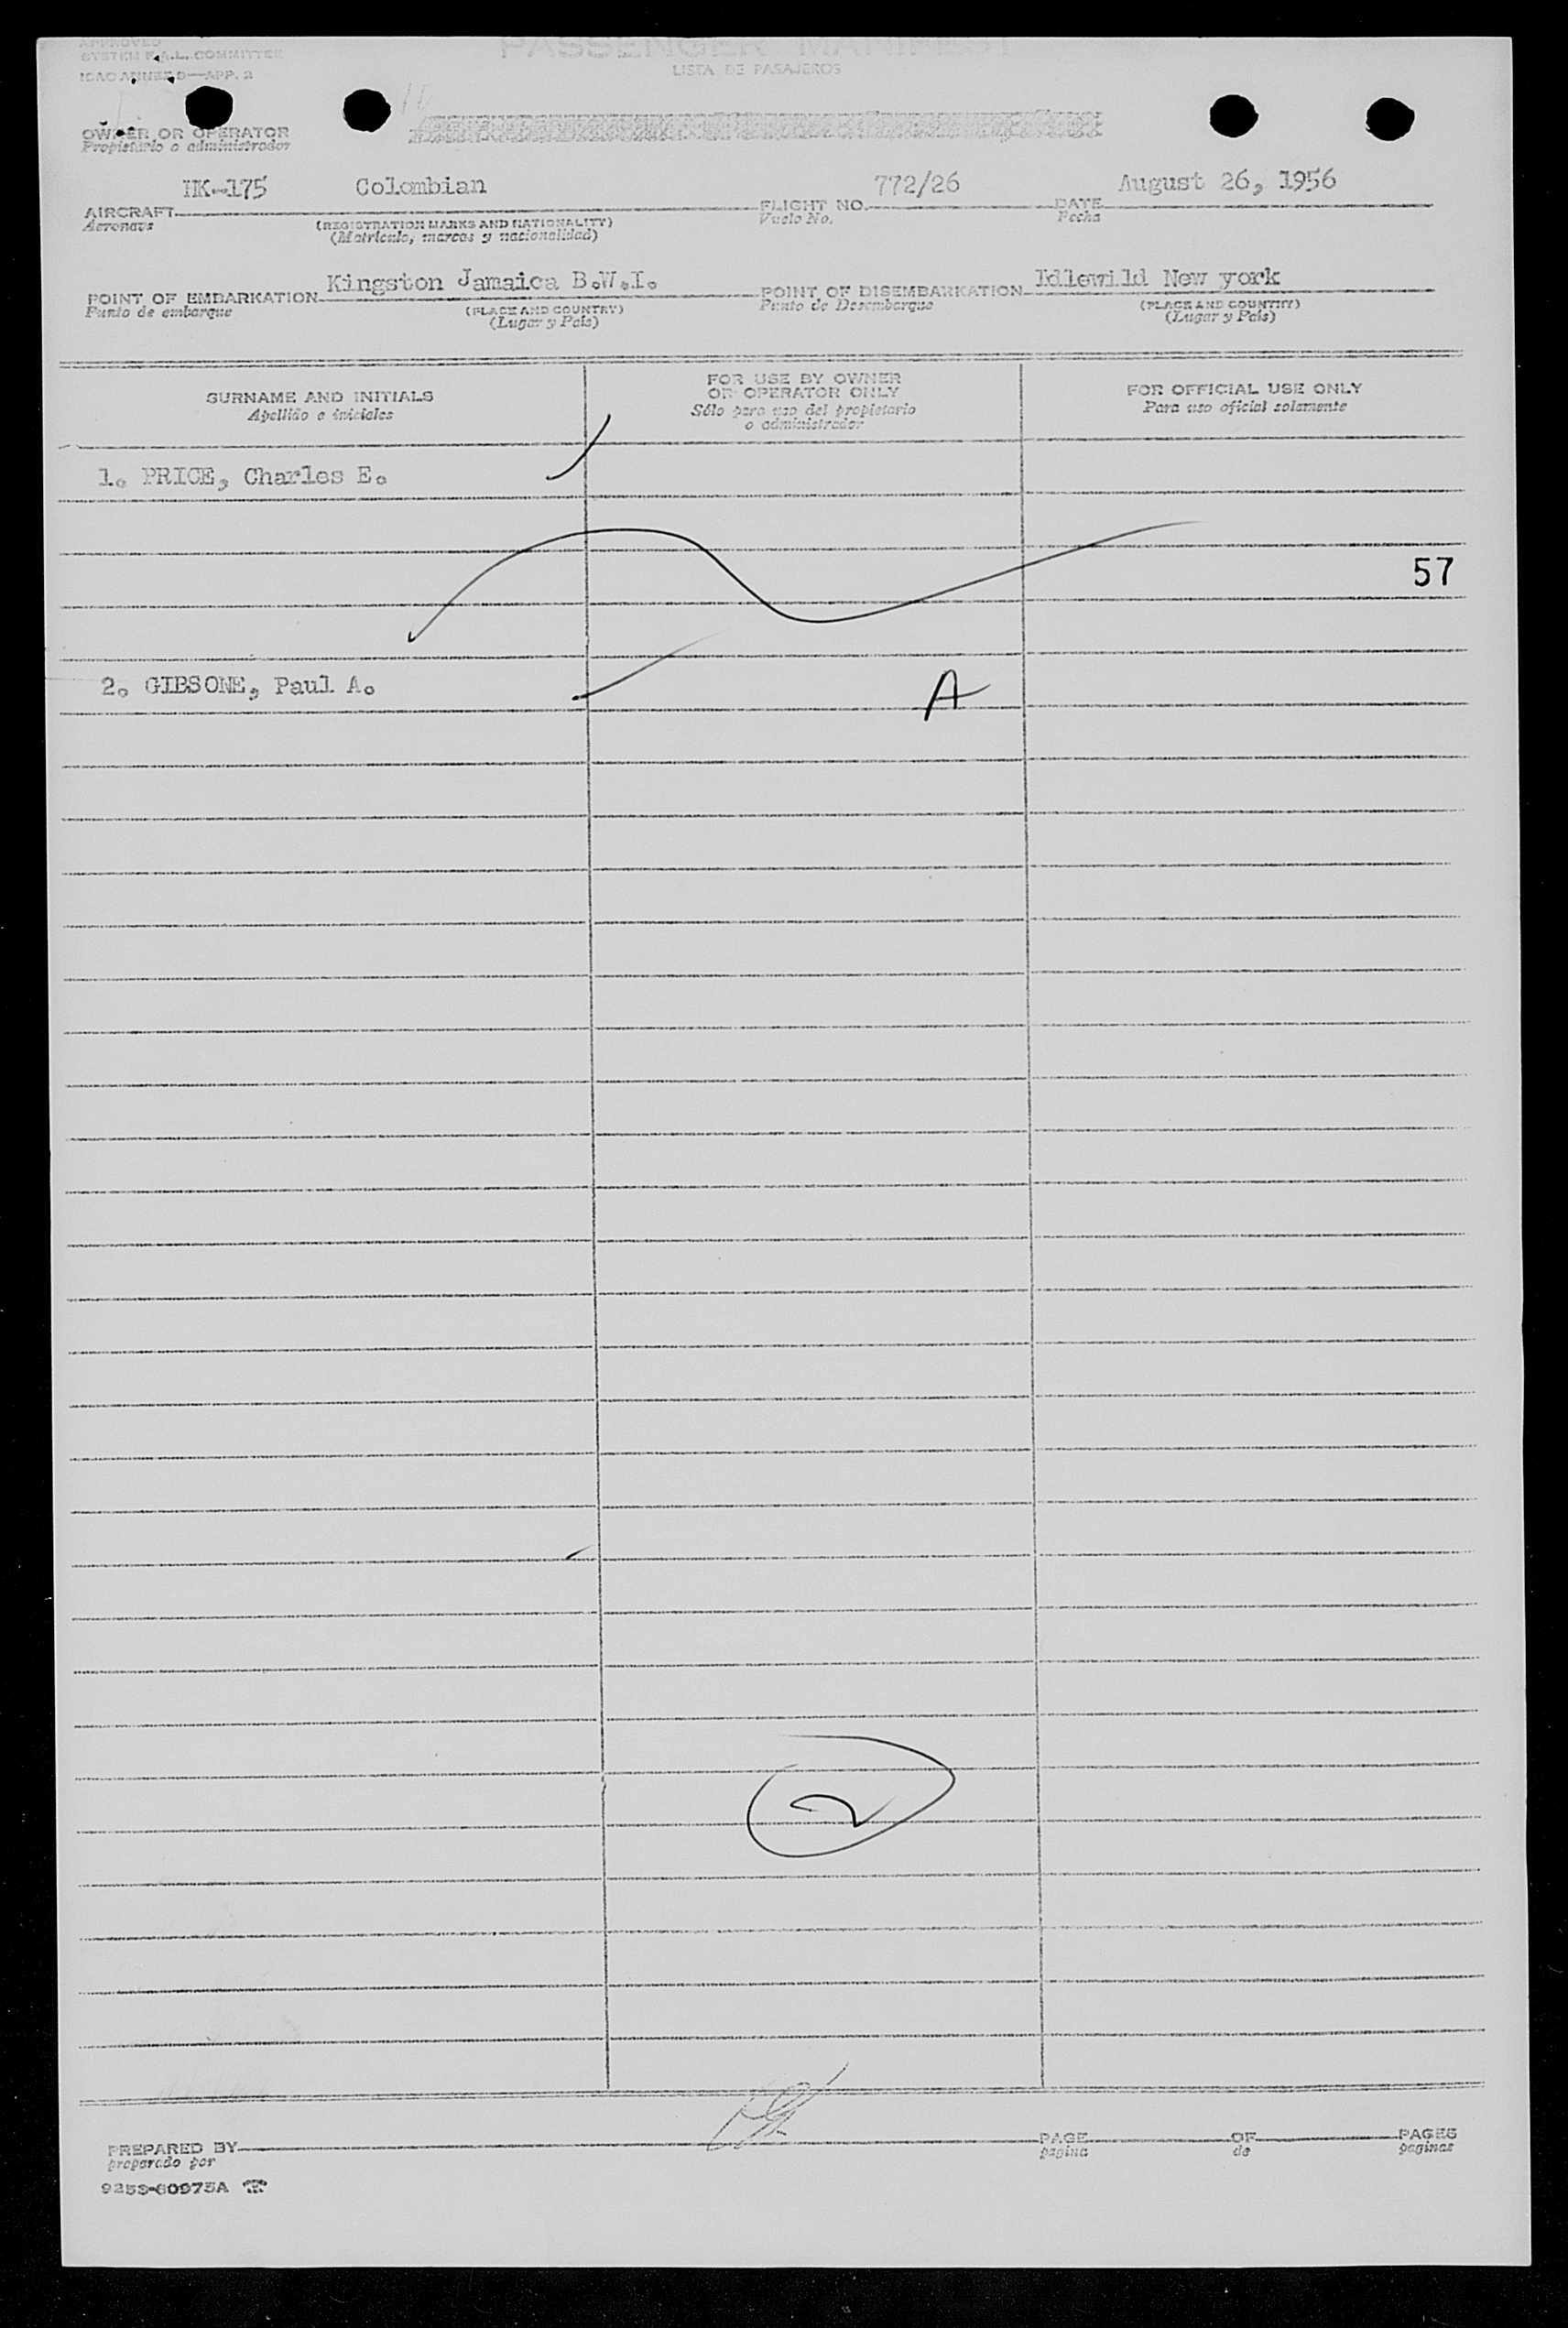 APPROVED
SYSTEM F.A.L. COMMITTEE
ICAO ANNEX 9—APP. 2
PASSENGER MANIFEST
LISTA DE PASAJEROS
OWNER OR OPERATOR
Propietario o administrador
HK-175 Colombian 772/26 August 26, 1956
AIRCRAFT FLIGHT NO. DATE
Aeronave (REGISTRATION MARKS AND NATIONALITY) Vuelo No. Fecha
(Matrícula, marcas y nacionalidad)
Kingston Jamaica B.W.I. Idlewild New york
POINT OF EMBARKATION POINT OF DISEMBARKATION
Punto de embarque (PLACE AND COUNTRY) Punto de Desembarque (PLACE AND COUNTRY)
(Lugar y País) (Lugar y País)
SURNAME AND INITIALS
Apellido e iniciales
FOR USE BY OWNER
OR OPERATOR ONLY
Sólo para uso del propietario
o administrador
FOR OFFICIAL USE ONLY
Para uso oficial solamente
1. PRICE, Charles E.
57
2. GIBSONE, Paul A. A
2
PREPARED BY PAGE OF PAGES
preparado por página de paginas
9253-60975A